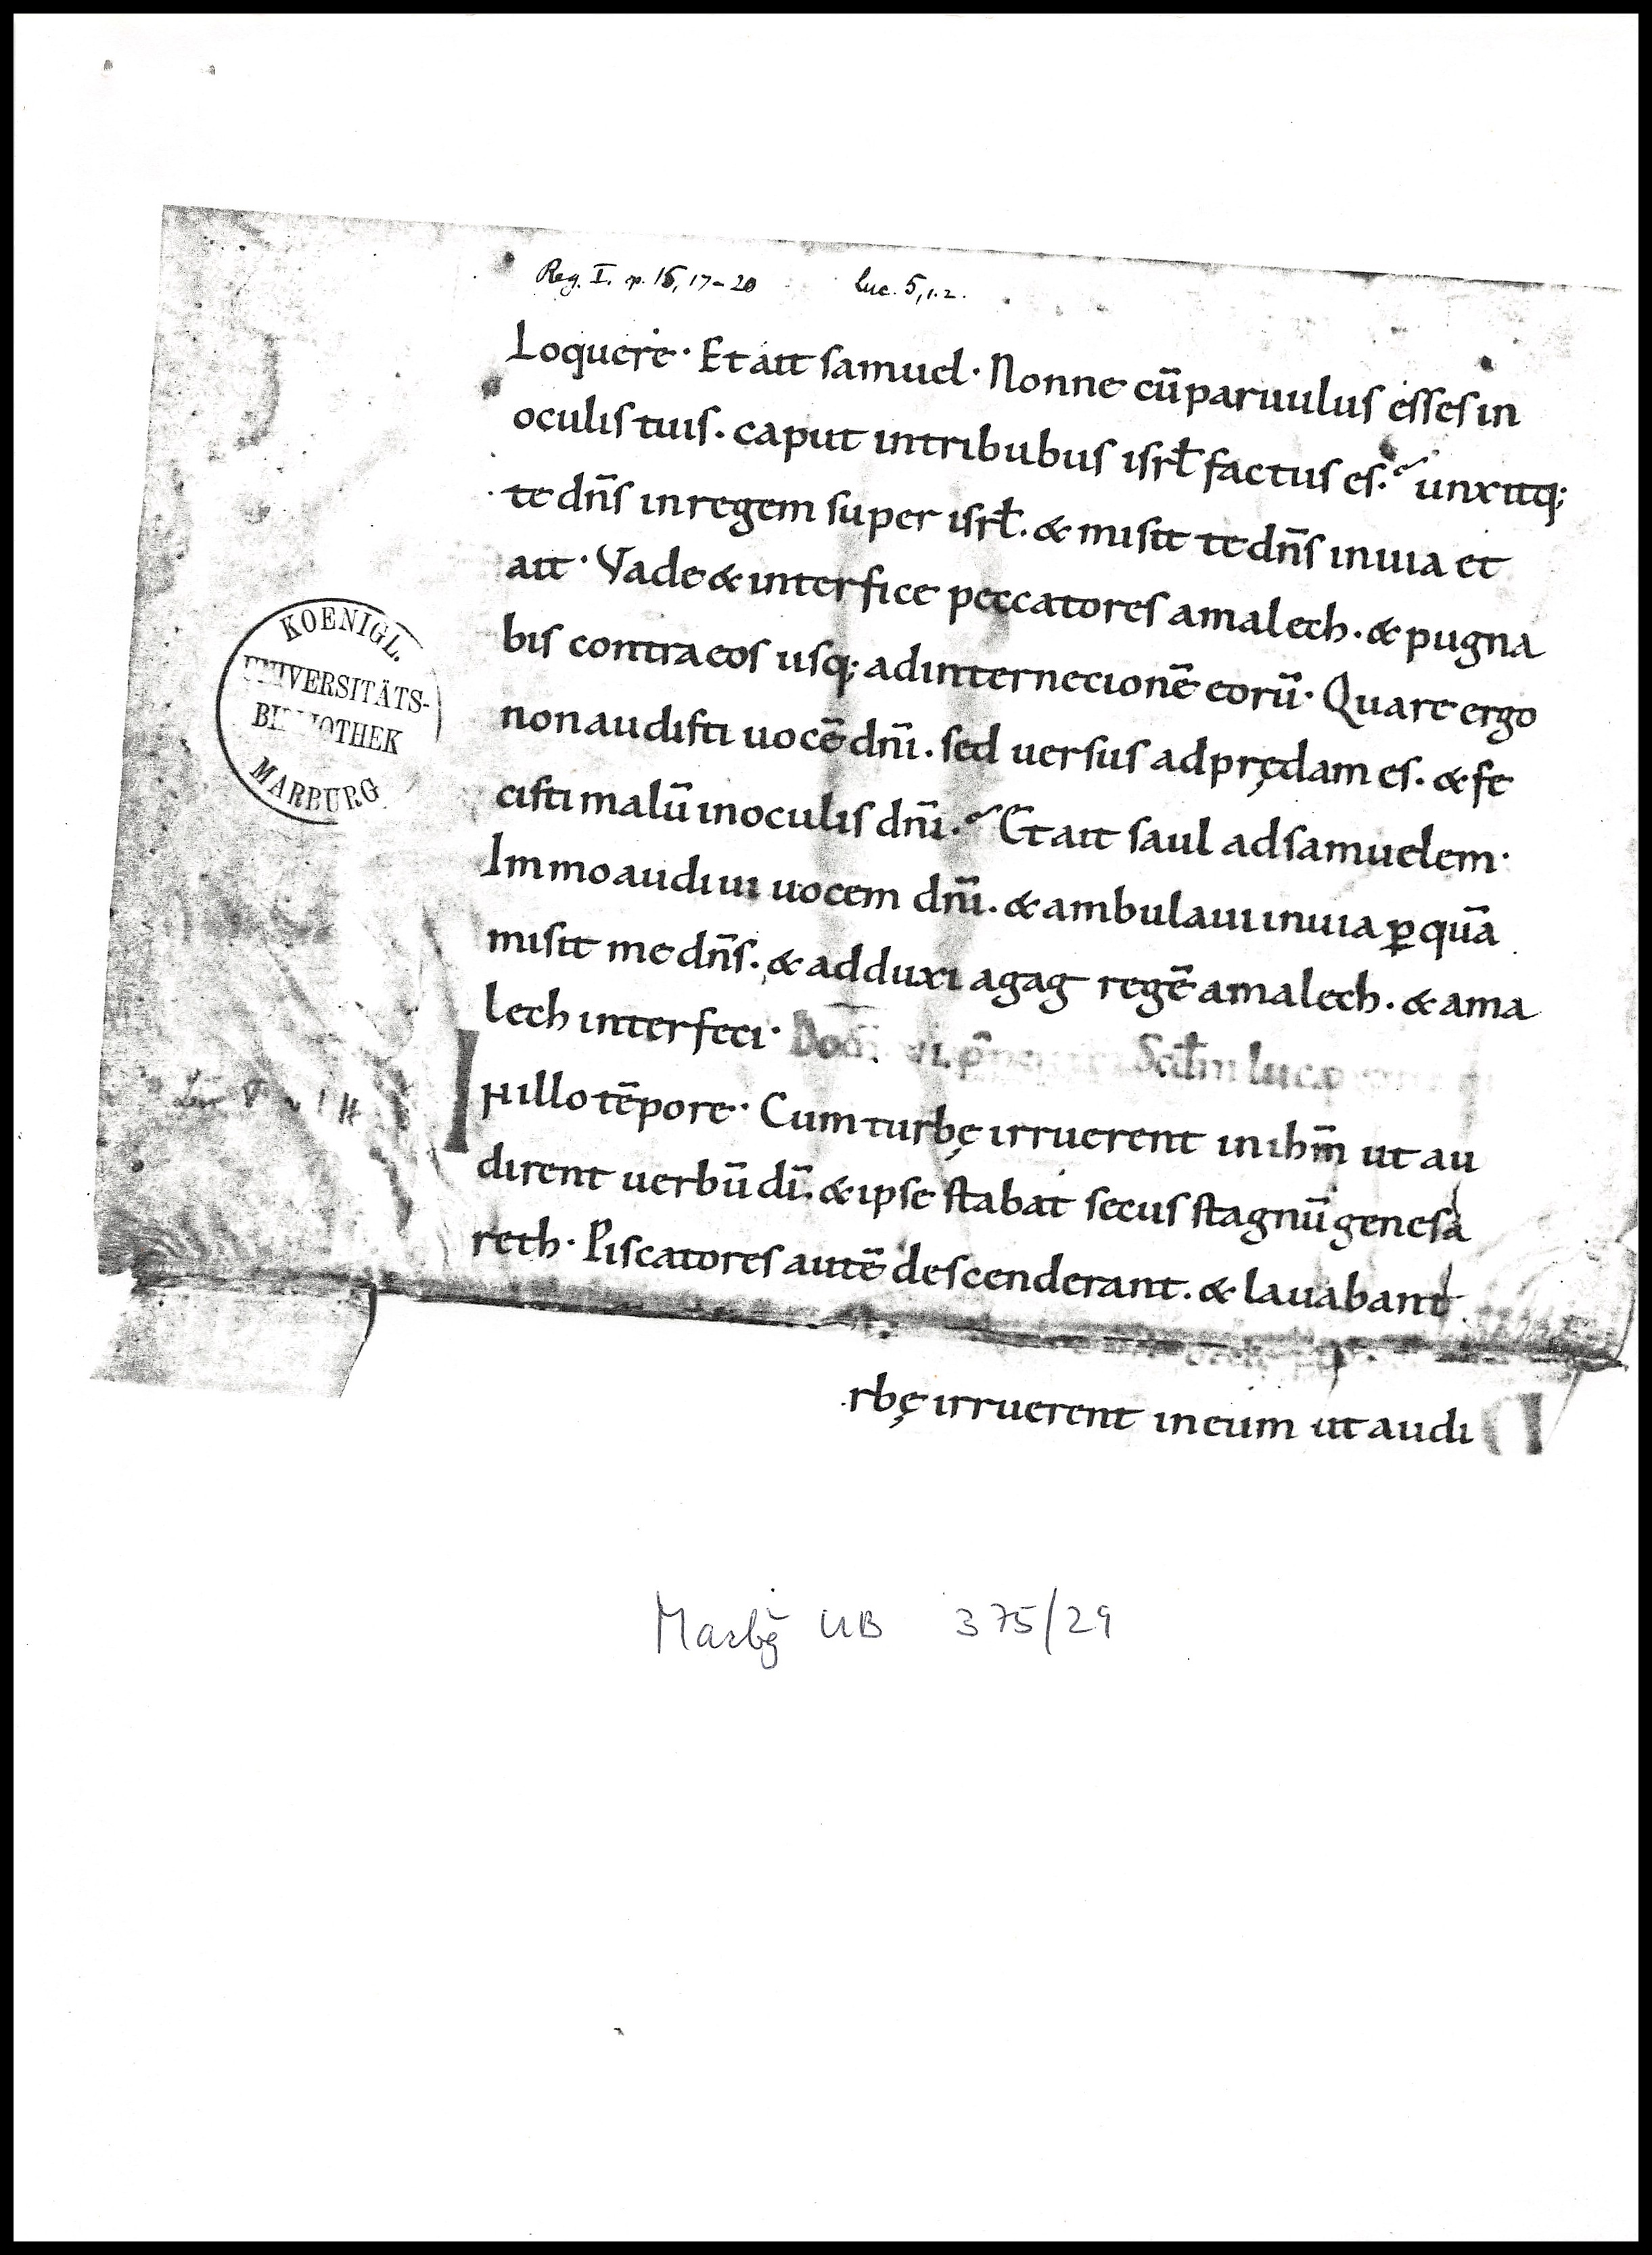 Reg. I. p. 15, 17-20 Luc. 5, 1.2.
Loquere· Et ait samuel· Nonne cū paruulus esses in
oculis tuis. caput in tribubus isrł factus es. unxitq;
te dn̄s in regem super isrł. & misit te dn̄s in uia et
ait· Vade & interfice peccatores amalech. & pugna
bis contra eos usq; ad internecionē eorū· Quare ergo
non audisti uocē dn̄i. sed uersus ad prędam es. & fe
cisti malū in oculis dn̄i. Et ait saul ad samuelem·
Immo audiui uocem dn̄i. & ambulaui in uia ꝑ quā
misit me dn̄s. & adduxi agag regē amalech. & ama
lech interfeci· Dom̄. VI. Scd̄m luc
IN illo tēpore· Cum turbę irruerent in ihm̄ ut au
dirent uerbū dī. & ipse stabat secus stagnū genesa
reth· Piscatores autē descenderant. & lauabant
rbę irruerent in eum ut audi
KOENIGL.
UNIVERSITÄTS-
BIBLIOTHEK
MARBURG
Marbg̃ UB 375/29